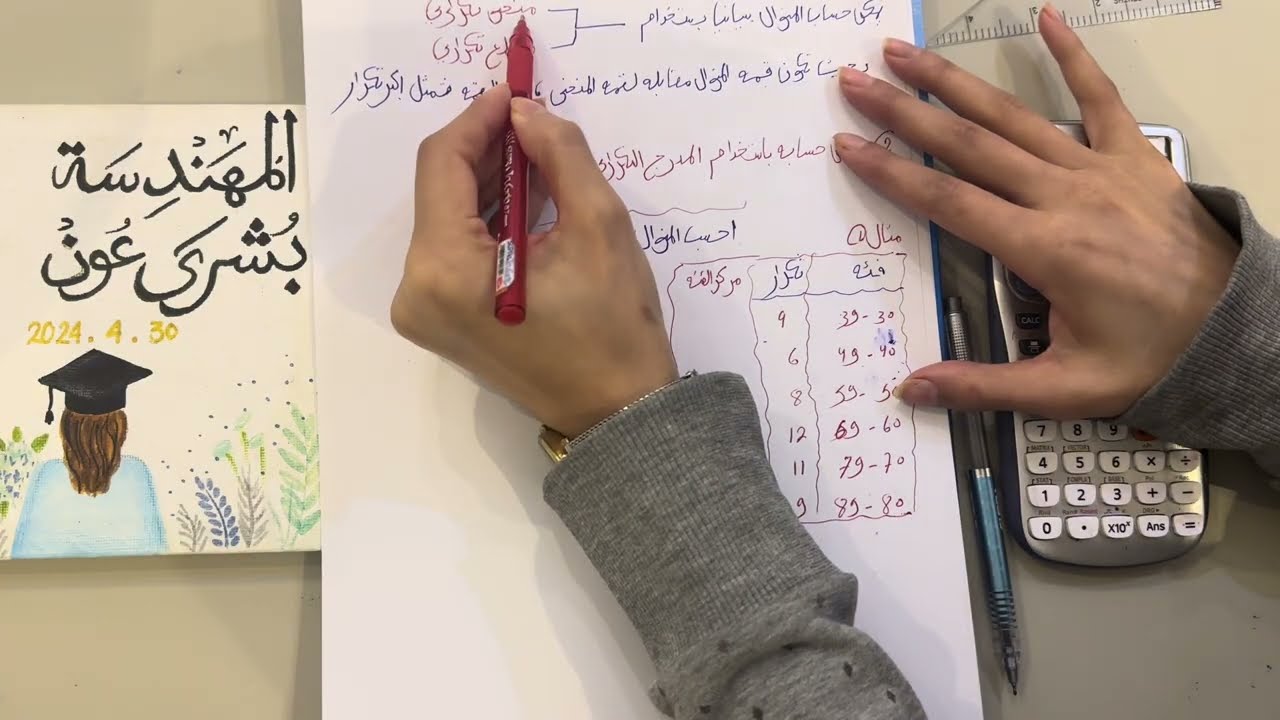 منحنى تكراري
يمكن حساب المنوال بيانيا باستخدام
مضلع تكراري
بحيث تكون قيمة المنوال مقابله لقمه المنحنى القيمه فتمثل اكبر تكرار
حسابه باستخدام المدرج التكراري
مثال احسب المنوال
فئه تكرار مركز الفئه
39-30 9
49-40 6
59-50 8
69-60 12
79-70 11
89-80 9
المهندسة
بشرى عون
2024.4.30
CALC
7 8 9
4 5 6 × ÷
1 2 3 + −
0 • x10ˣ Ans =